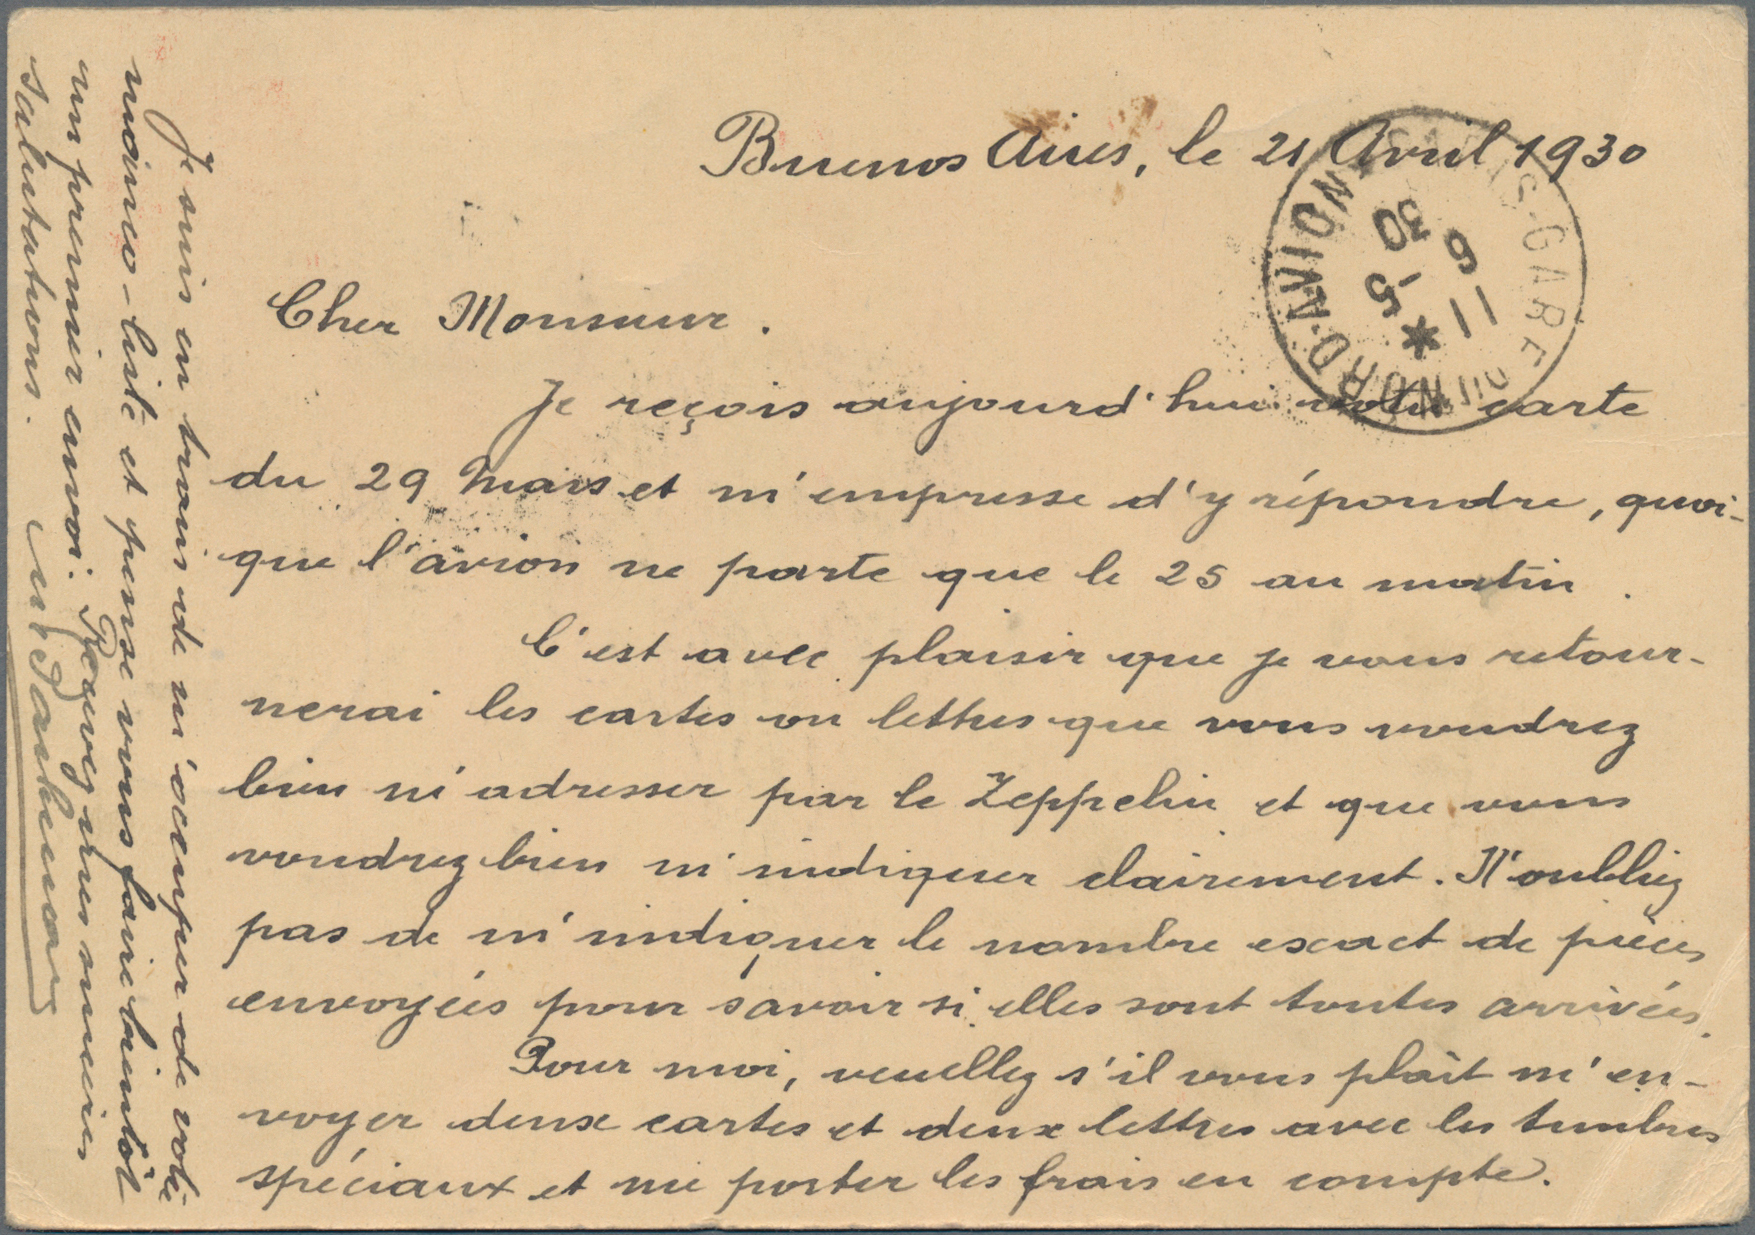 Buenos Aires, le 21 Avril 1930
PARIS-GARE DU NORD-AVION
11
6 -5
30
Cher Monsieur.
Je reçois aujourd'hui votre carte
du 29 Mars et m'empresse d'y répondre, quoi-
que l'avion ne parte que le 25 au matin.
C'est avec plaisir que je vous retour-
nerai les cartes ou lettres que vous voudrez
bien m'adresser par le Zeppelin et que vous
voudrez bien m'indiquer clairement. N'oubliez
pas de m'indiquer le nombre exact de pièces
envoyées pour savoir si elles sont toutes arrivées.
Pour moi, veuillez s'il vous plaît m'en-
voyer deux cartes et deux lettres avec les timbres
spéciaux et me porter les frais en compte.
Je suis en train de m'occuper de votre
manco-liste et pense vous faire bientôt
un premier envoi. Recevez mes sincères
salutations.